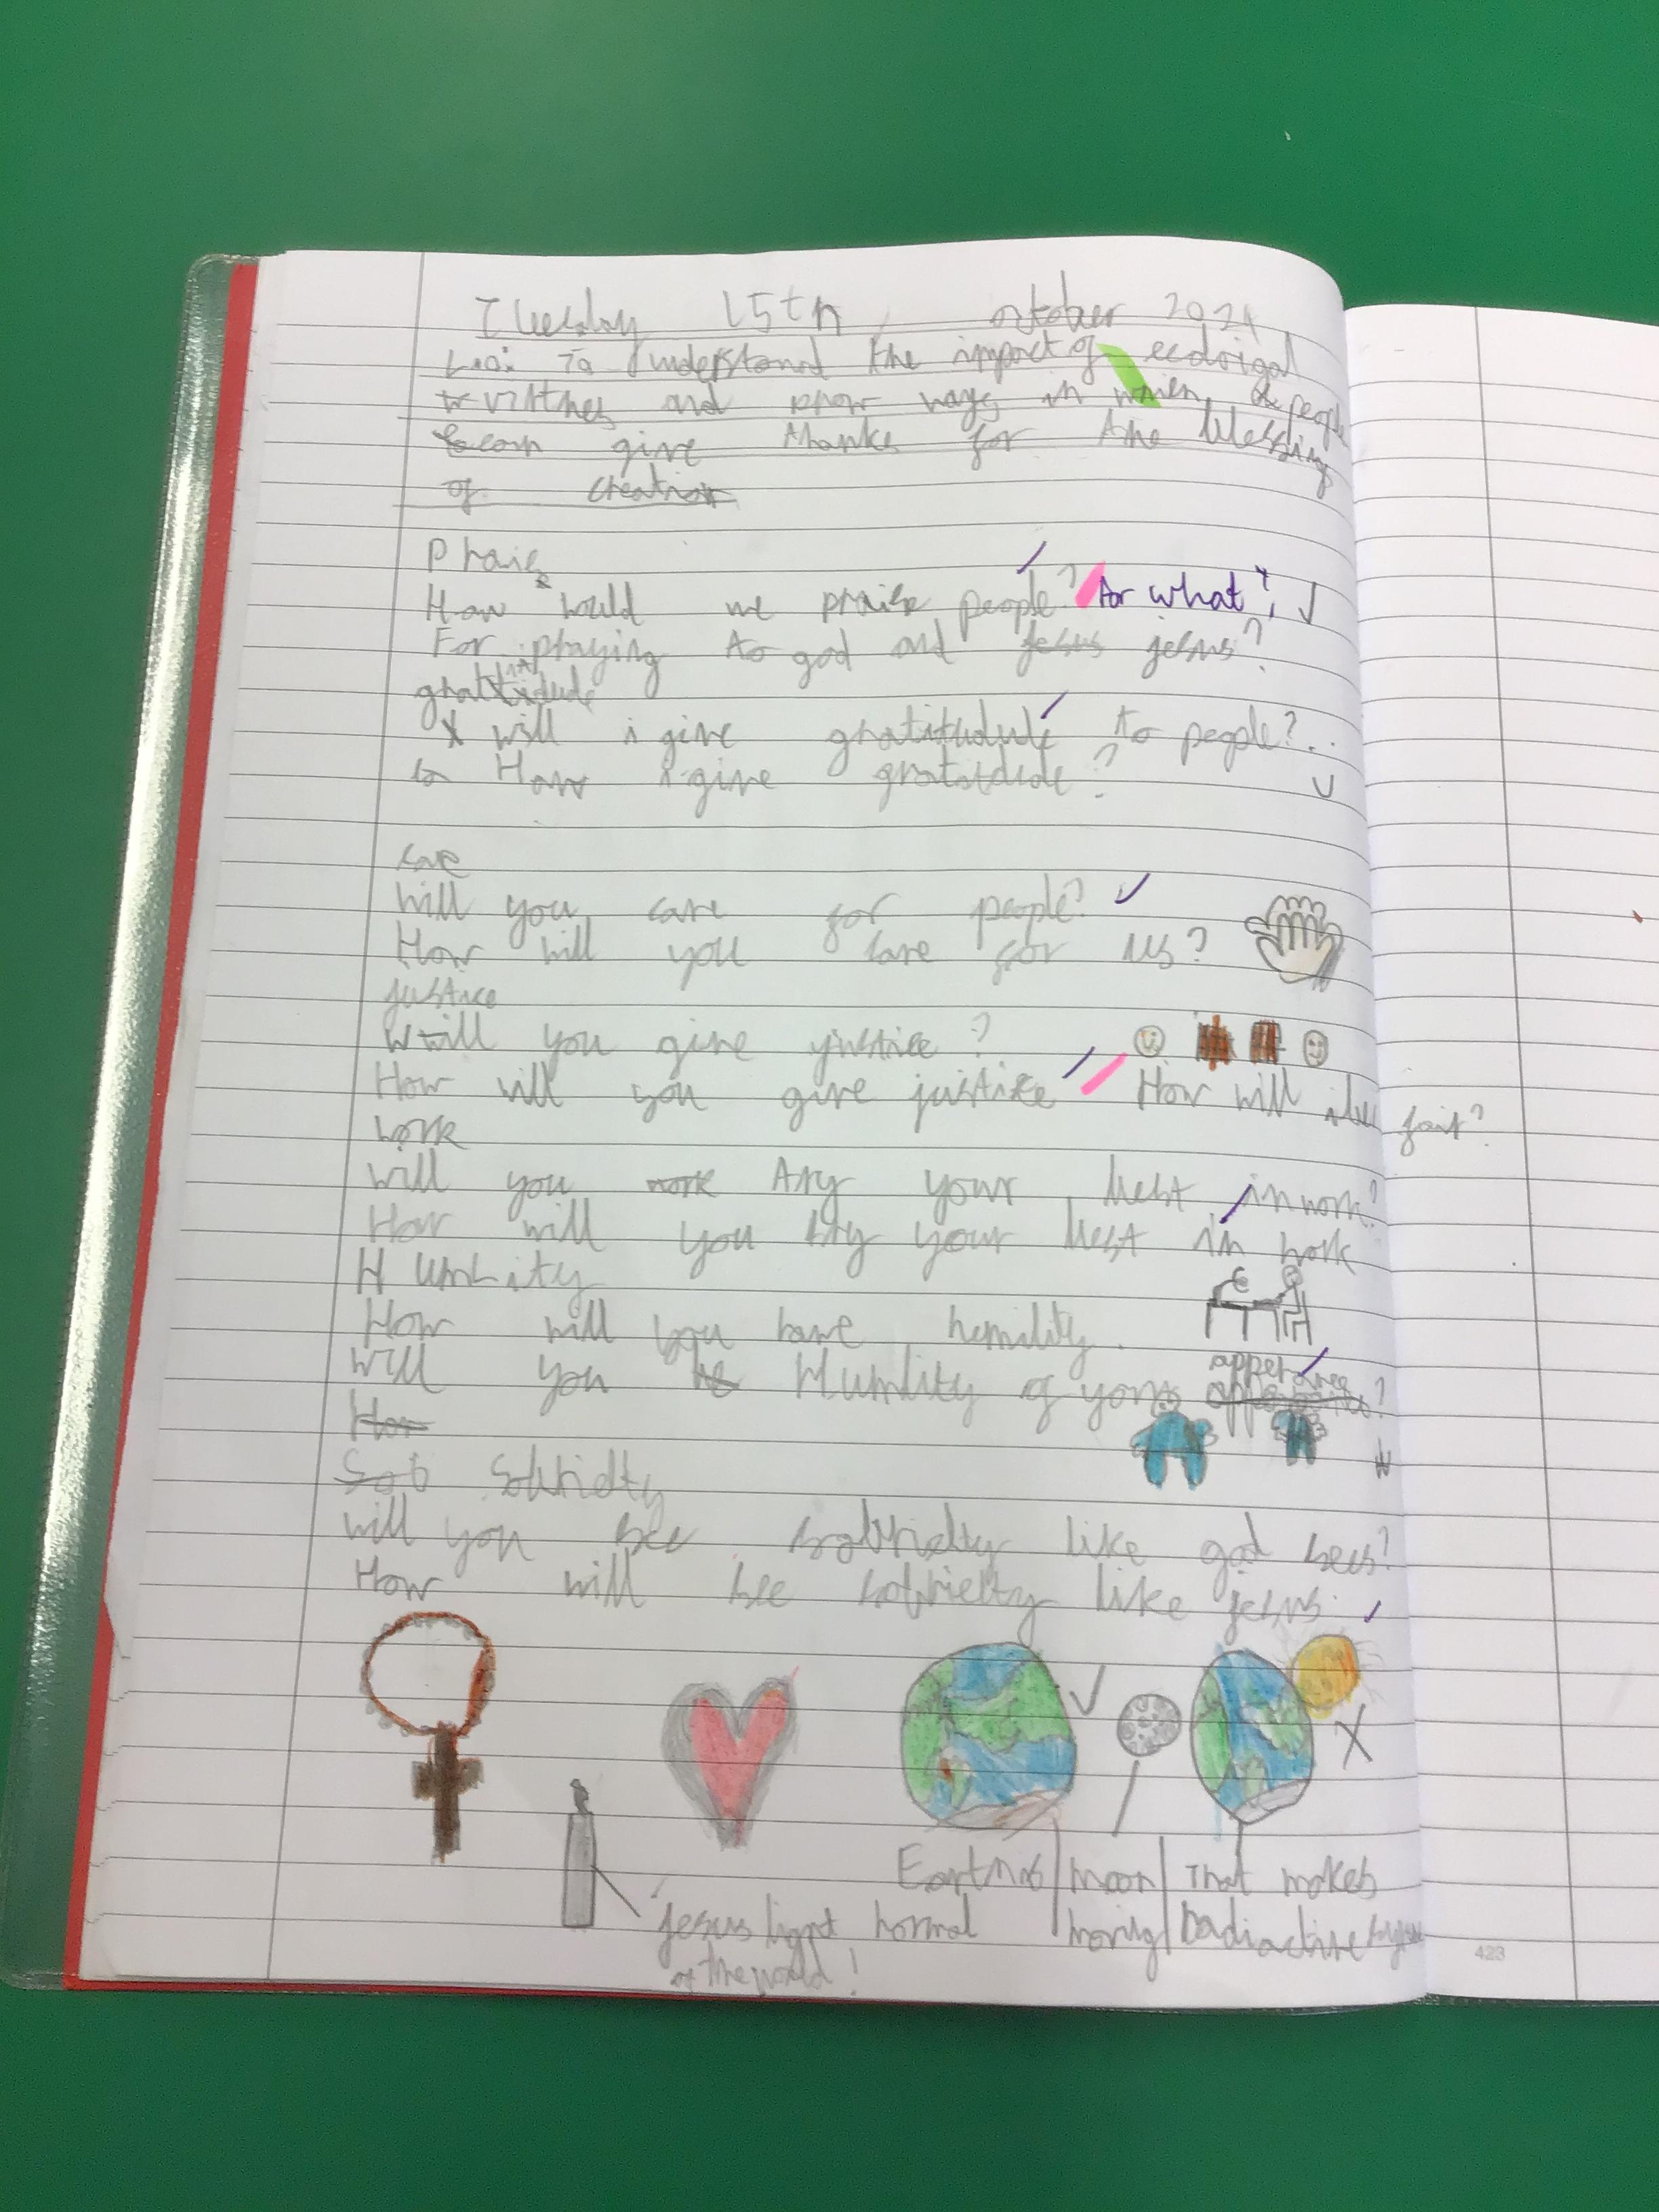 Tuesday 15th october 2024
L.O: To understand the impact of ecoloigal
virtines and know ways in which people
can give thanks for the blessing
of creation
Praise
How would we praise people? for what?
For praying to god and jesus jesus?
gratitidude
will i give gratitudude to people?..
How i give gratitidude?
care
Will you care for people?
How will you care for us?
justice
Will you give justice?
How will you give justice How will i be fair?
work
will you work try your best in work?
How will you try your best in work
Humlity
How will you have humility.
will you Humlity of yours
Sobriedty
will you see sobriedty like god sees?
How will see sobriedty like jesus.
Earth is moon That makes
jesus light normal moving radiactive
of the world!
423